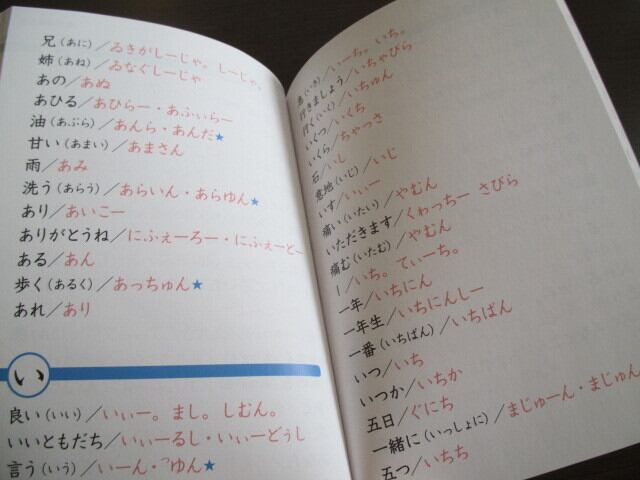 兄(あに)／ゐきがしーじゃ。しーじゃ。
姉(あね)／ゐなぐしーじゃ
あの／あぬ
あひる／あひらー・あふぃらー
油(あぶら)／あんら・あんだ★
甘い(あまい)／あまさん
雨／あみ
洗う(あらう)／あらいん・あらゆん★
あり／あいこー
ありがとうね／にふぇーろー・にふぇーどー
ある／あん
歩く(あるく)／あっちゅん★
あれ／あり
い
良い(いい)／いぃー。まし。しむん。
いいともだち／いぃーるし・いぃーどぅし
言う(いう)／いーん・っゆん★
息(いき)／いーち。いち。
行きましょう／いちゃびら
行く(いく)／いちゅん
いくつ／いくち
いくら／ちゃっさ
石／いし
意地(いじ)／いじ
いす／いぃー
痛い(いたい)／やむん
いただきます／くゎっちー さびら
痛む(いたむ)／やむん
一／いち。てぃーち。
一年／いちにん
一年生／いちにんしー
一番(いちばん)／いちばん
いつ／いち
いつか／いちか
五日／ぐにち
一緒に(いっしょに)／まじゅーん・まじゅん
五つ／いちち